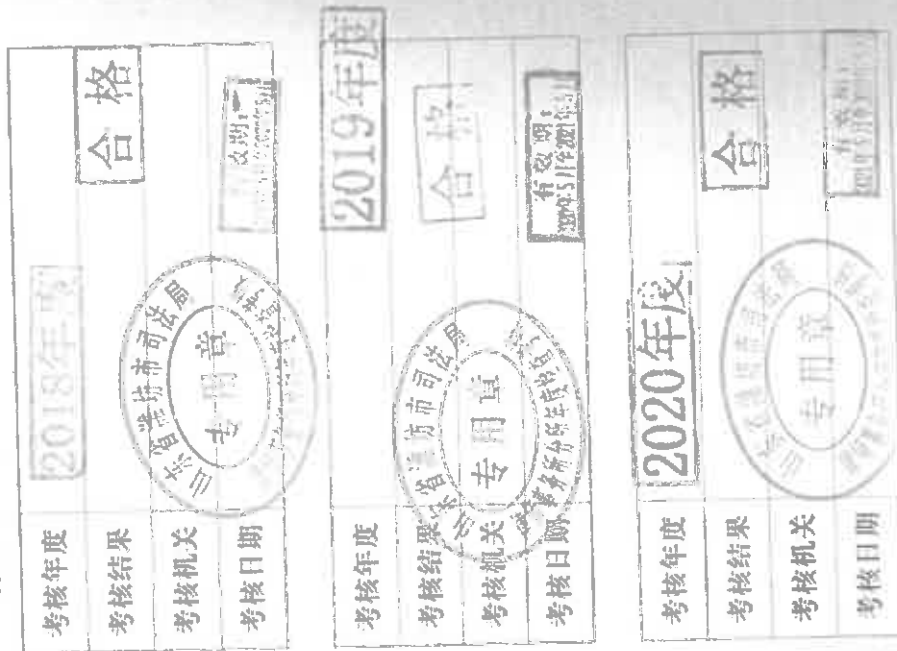 考核年度 2018年度
考核结果 合格
考核机关 山东省潍坊市司法局 专用章
考核日期
考核年度 2019年度
考核结果 合格
考核机关 山东省潍坊市司法局 专用章
考核日期 有效期:
考核年度 2020年度
考核结果 合格
考核机关 专用章
考核日期